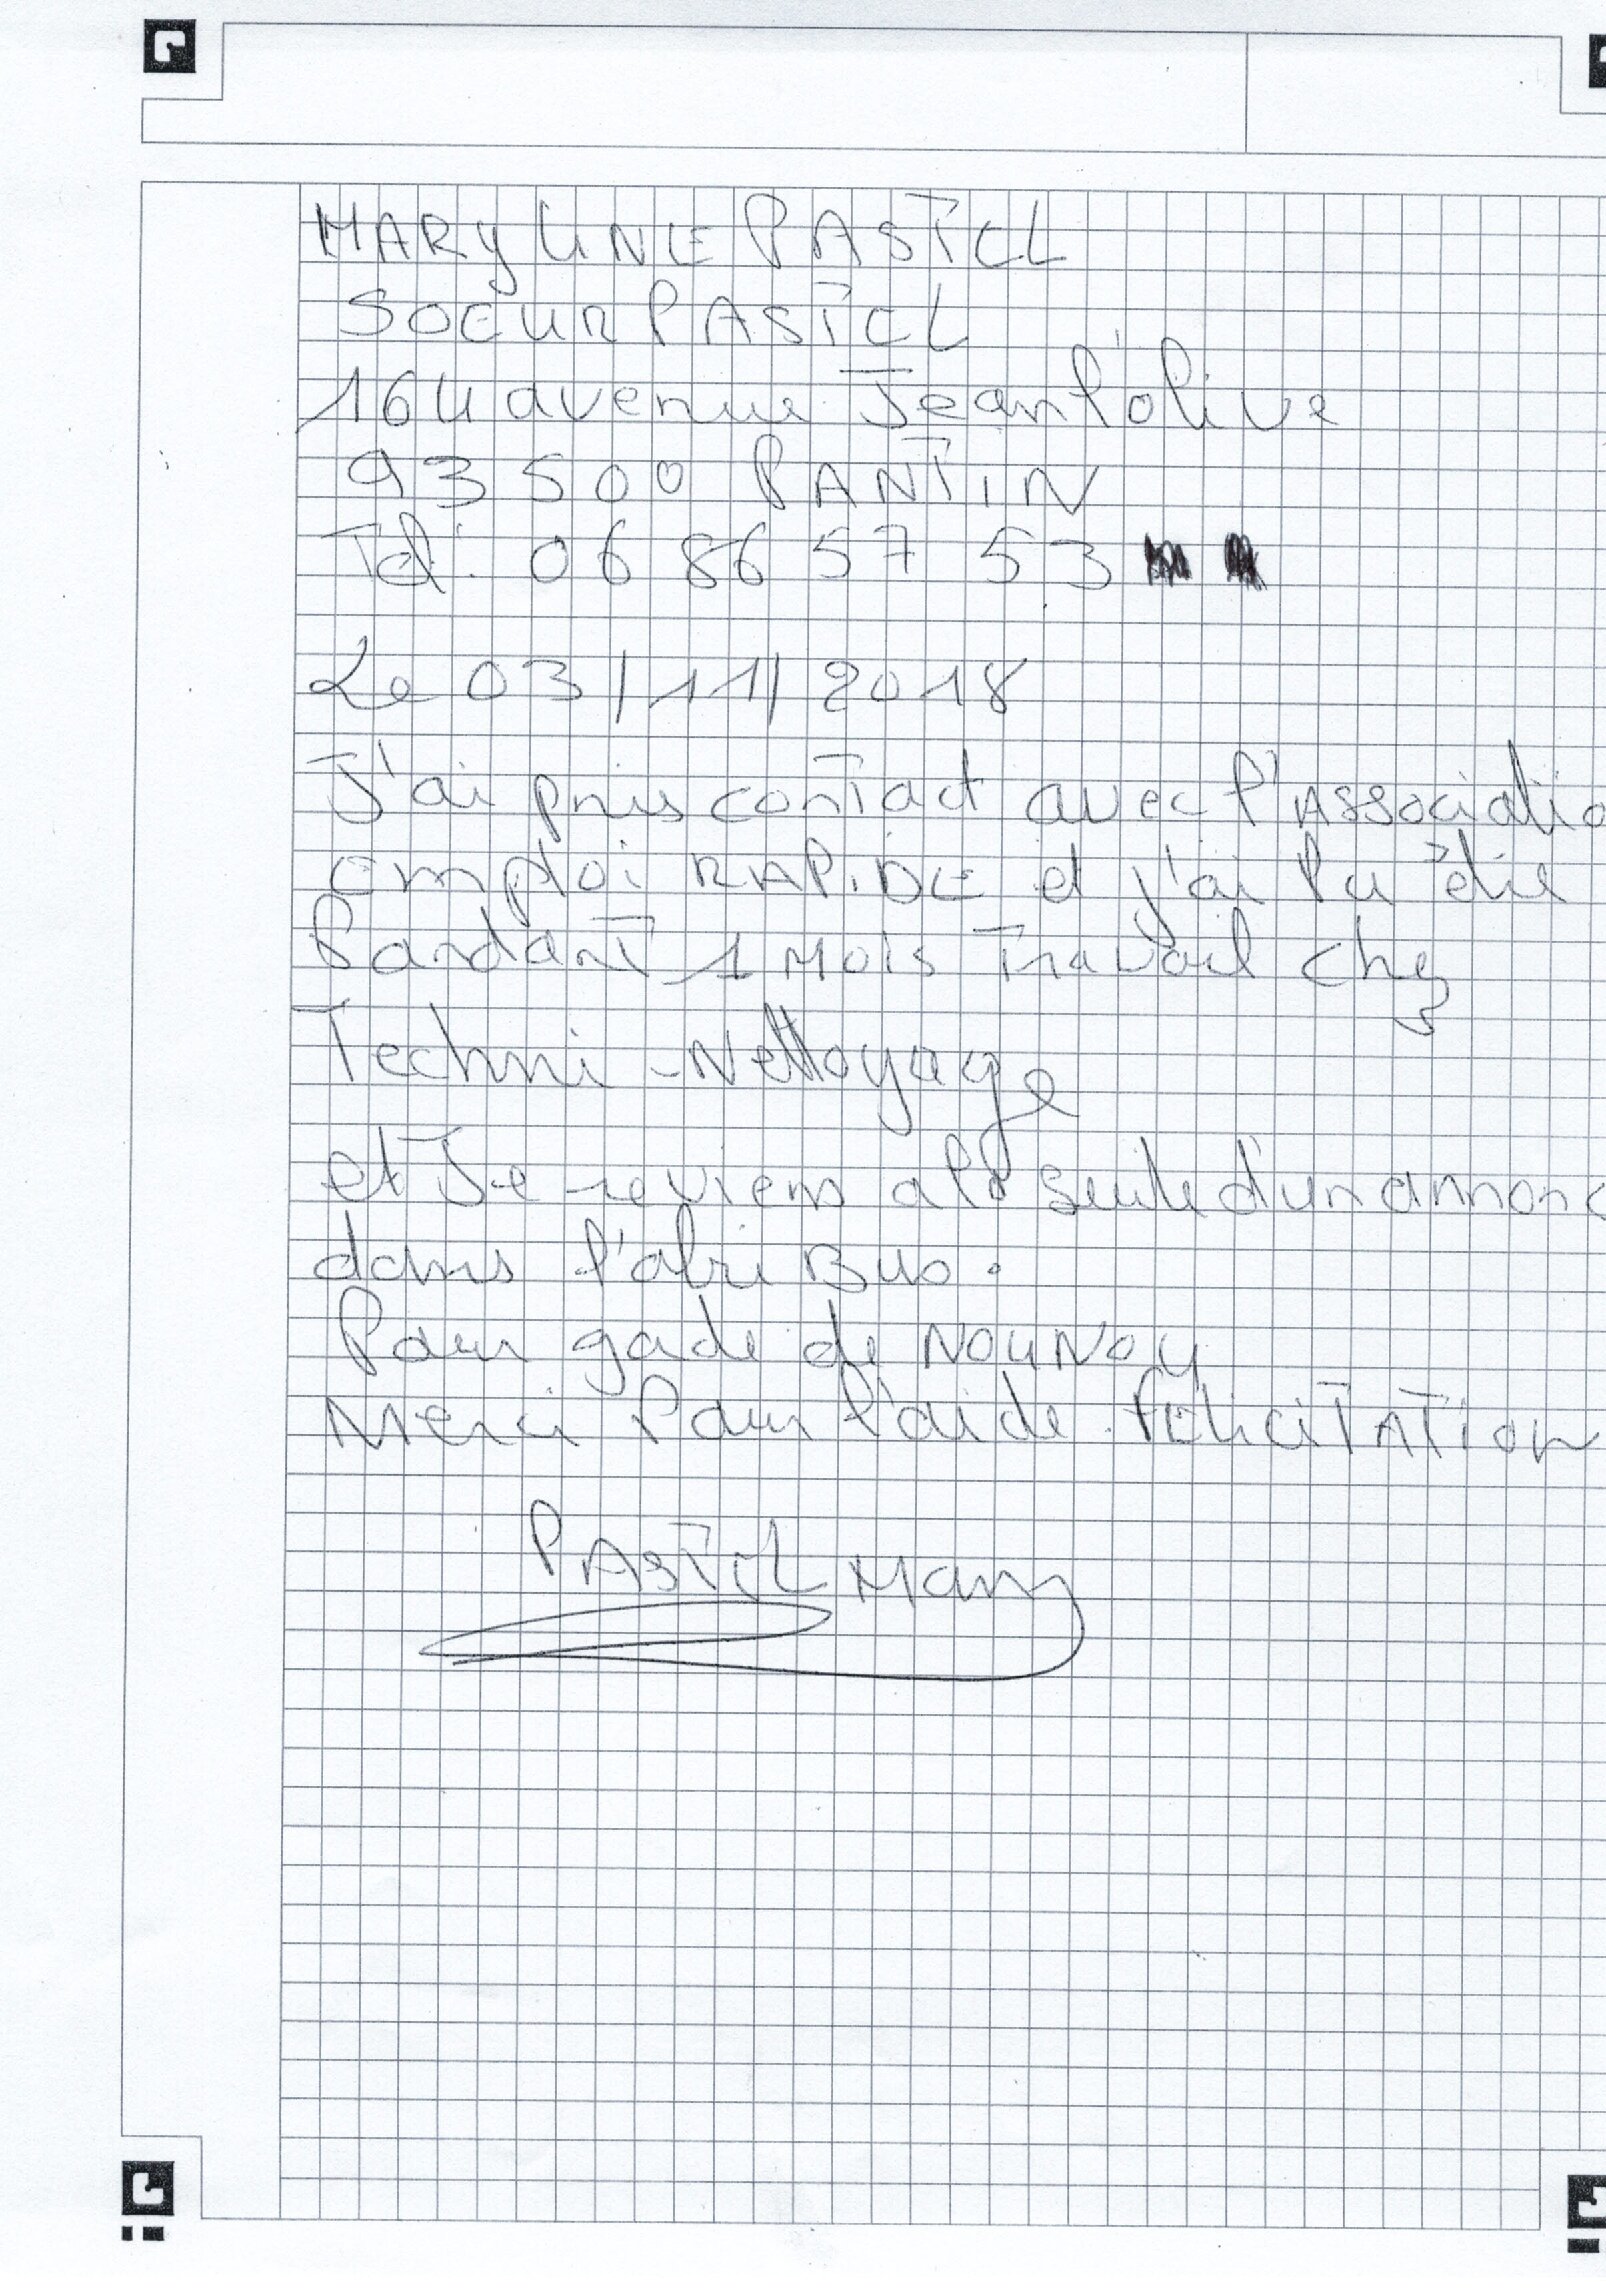 MARYLINE PASTEL
SOEUR PASTEL
164 avenue Jean lolive
93 500 PANTIN
Tel: 06 86 57 53
Le 03/11/2018
J'ai pris contact avec l'Associatio
emploi RAPIDE et j'ai pu être
Pandant 1 Mois Travail chez
Techni-Nettoyage
et Je reviens a la suite d'un annonc
dans l'abri Bus.
Pour gade de NOUNOU
Merci Pour l'aide. FELICITATION
PASTEL Mary